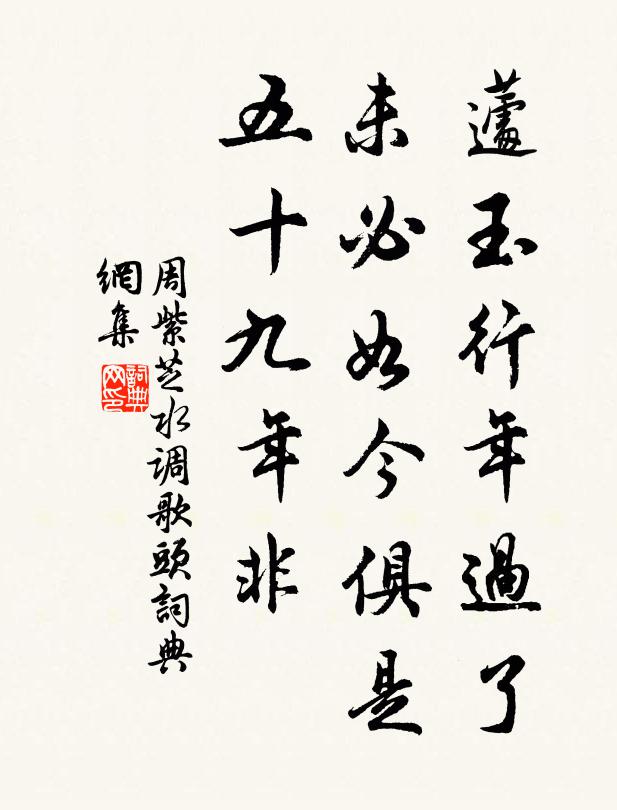 蘧玉行年過了
未必如今俱是
五十九年非
周紫芝水调歌頭詞典
網集
詞典
网印